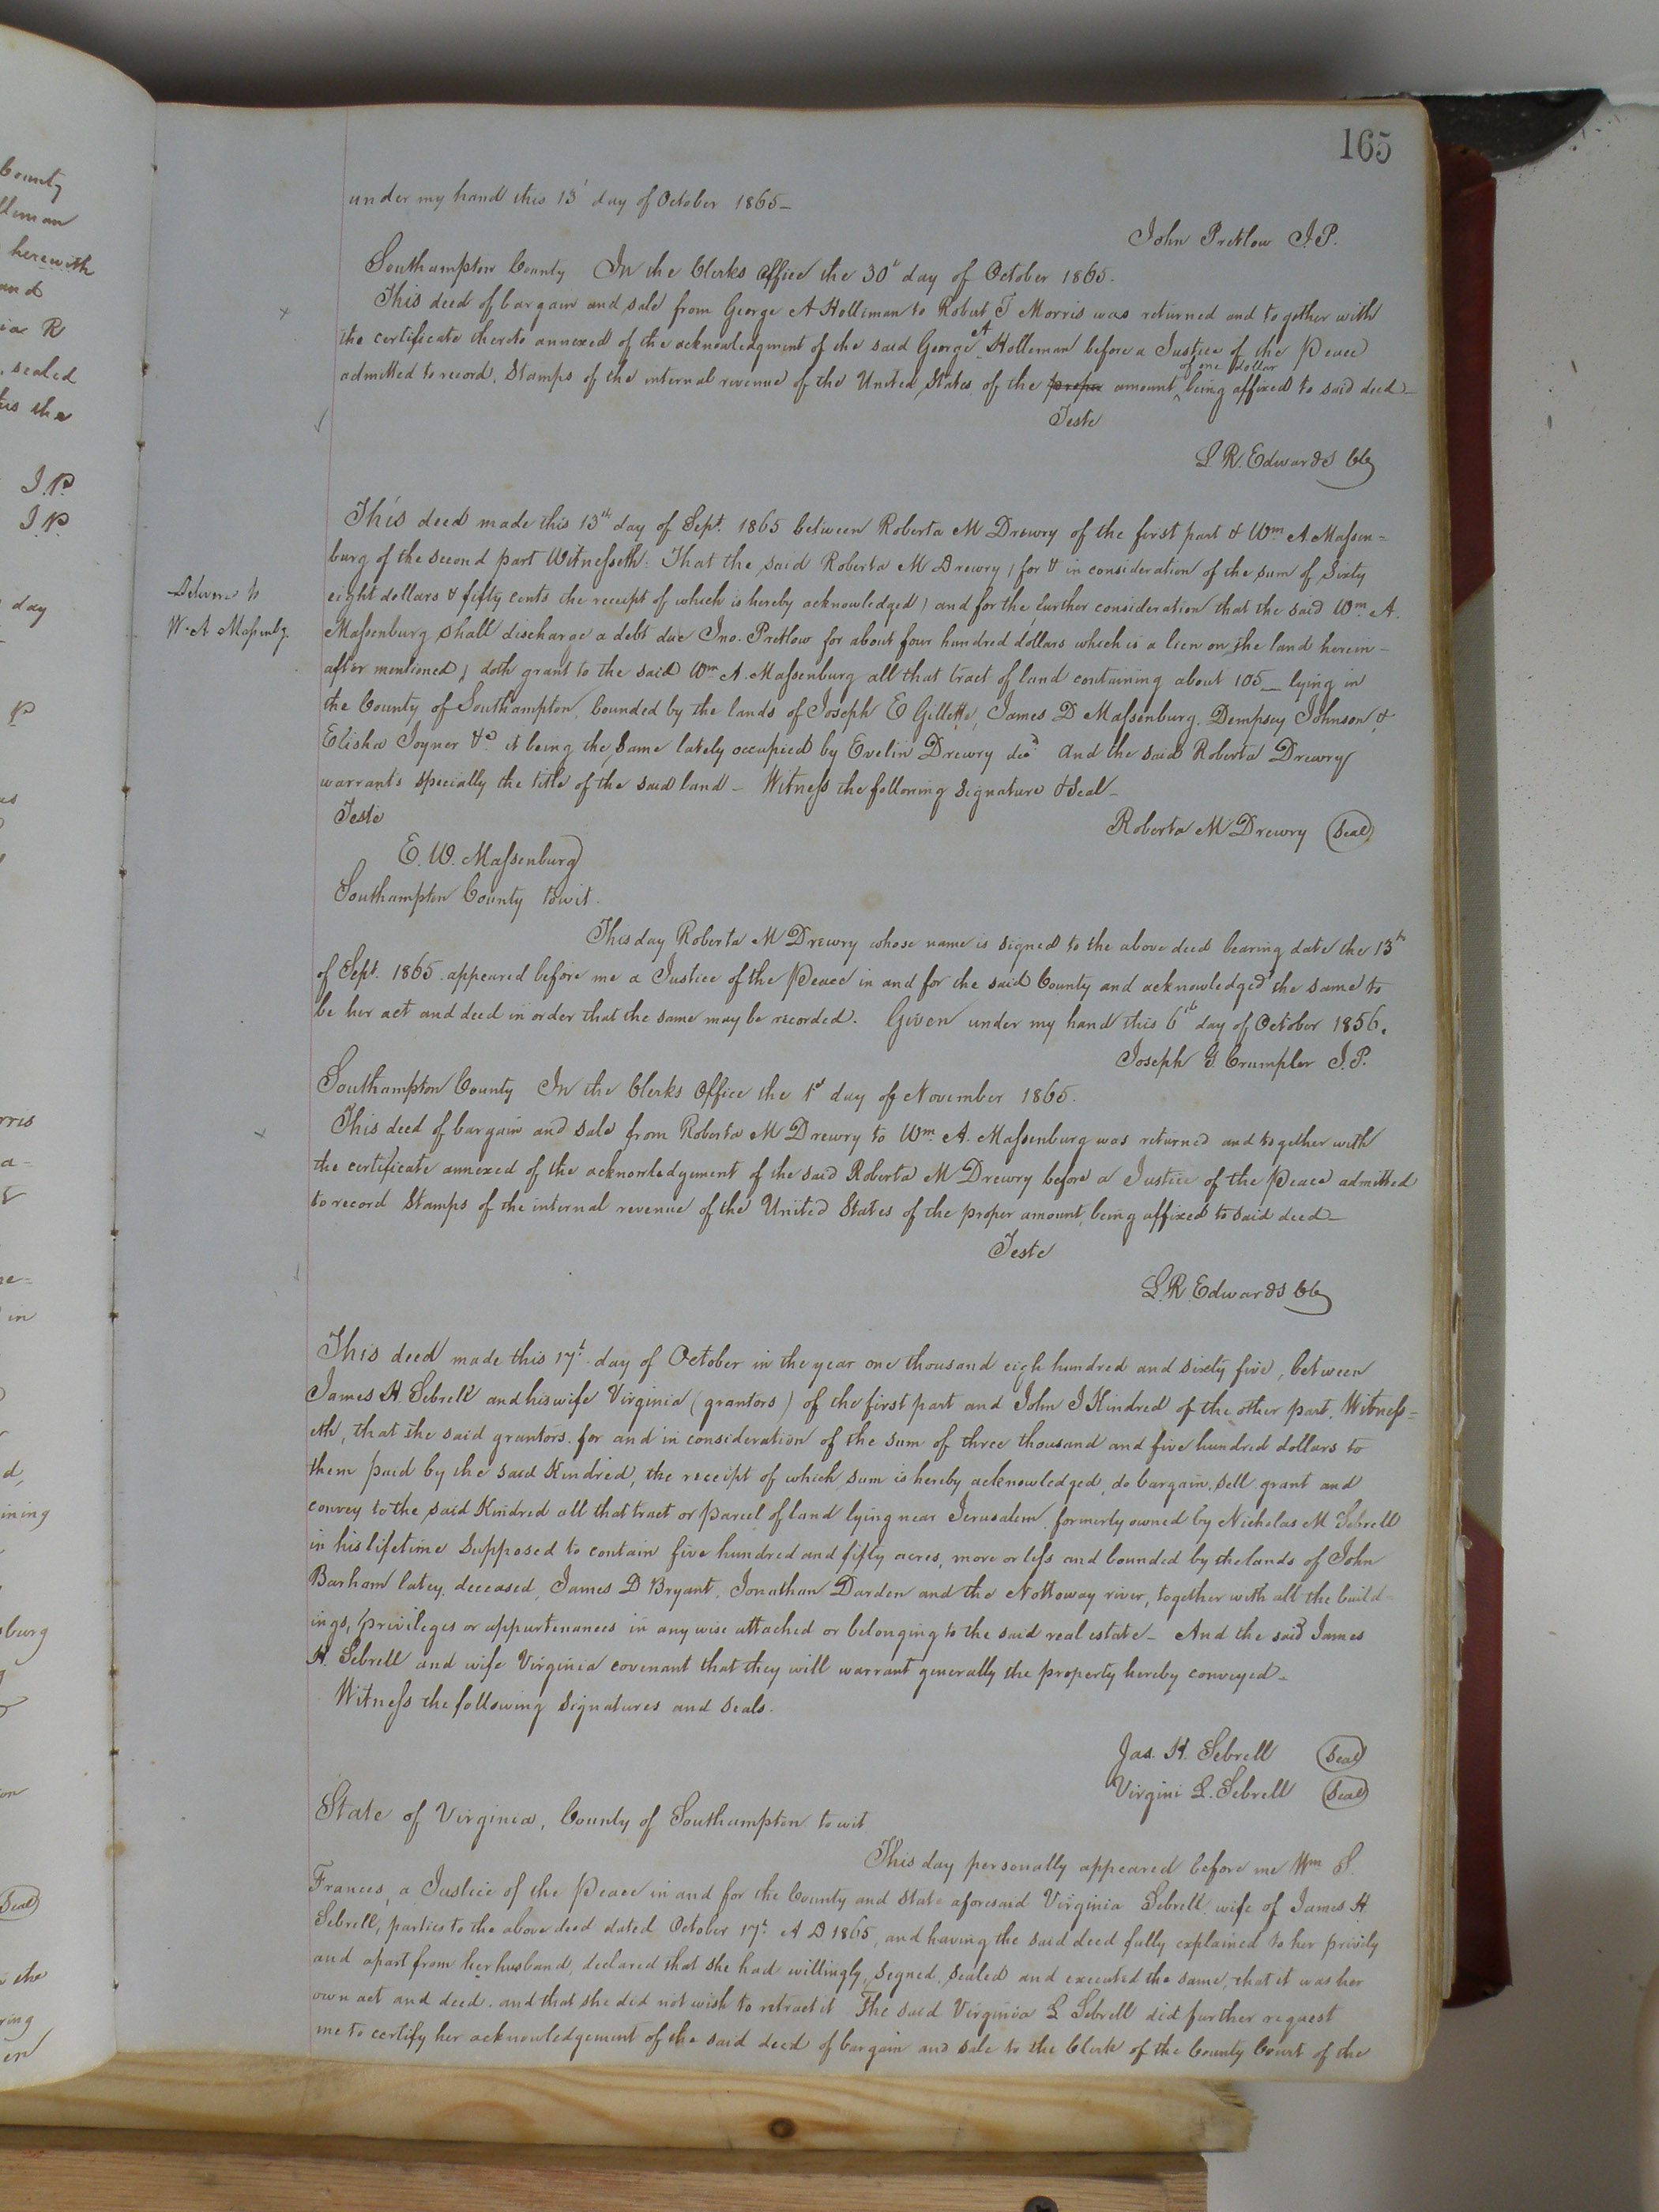 165
under my hand this 13' day of October 1865_
John Pretlow J.P.
Southampton County In the Clerks Office the 30t day of October 1865.
This deed of bargain and sale from George A Holliman to Robert T Morris was returned and together with
the certificate thereto annexed of the acknowledgment of the said George A Holleman before a Justice of the Peace
admitted to record. Stamps of the internal revenue of the United States of the proper amount of one dollar being affixed to said deed_
Teste
L R. Edwards Clk
This deed made this 13th day of Sept. 1865 between Roberta M Drewry of the first part & Wm A Massen=
burg of the second part Witnesseth: That the said Roberta M Drewry (for & in consideration of the sum of Sixty
eight dollars & fifty cents the receipt of which is hereby acknowledged) and for the further consideration that the said Wm A.
Massenburg shall discharge a debt due Jno. Pretlow for about four hundred dollars which is a lien on the land herein-
after mentioned) doth grant to the said Wm A. Massenburg all that tract of land containing about 105_ lying in
the County of Southampton, bounded by the lands of Joseph E Gillette, James D Massenburg. Dempsey Johnson &
Elisha Joyner &c it being the same lately occupied by Evelin Drewry decd And the said Roberta Drewry
warrants specially the title of the said land_ Witness the following signature & Seal_
Teste
Roberta M Drewry (Seal)
E. W. Massenburg
Delivered to
W. A Massenbg.
Southampton County towit.
This day Roberta M Drewry whose name is signed to the above deed bearing date the 13th
of Sept. 1865. appeared before me a Justice of the Peace in and for the said County and acknowledged the same to
be her act and deed in order that the same may be recorded. Given under my hand this 6th day of October 1856.
Joseph G Crumpler J.P.
Southampton County In the Clerks Office the 1st day of November 1865.
This deed of bargain and sale from Roberta M Drewry to Wm. A. Massenburg was returned and together with
the certificate annexed of the acknowledgement of the said Roberta M Drewry before a Justice of the Peace admitted
to record Stamps of the internal revenue of the United States of the proper amount being affixed to said deed_
Teste
L.R. Edwards Clk
This deed made this 17t day of October in the year one thousand eigh hundred and sixty five, between
James H. Sebrell and his wife Virginia (grantors) of the first part and John J Kindred of the other part. Witness=
eth, that the said grantors. for and in consideration of the sum of three thousand and five hundred dollars to
them paid by the said Kindred, the receipt of which sum is hereby acknowledged, do bargain, sell grant and
convey to the said Kindred all that tract or parcel of land lying near Jerusalem, formerly owned by Nicholas M Sebrell
in his lifetime Supposed to contain five hundred and fifty acres, more or less and bounded by the lands of John
Barham latey, deceased, James D Bryant, Jonathan Darden and the Nottoway river, together with all the build-
ings, privileges or appurtenances in any wise attached or belonging to the said real estate_ And the said James
H. Sebrell and wife Virginia covenant that they will warrant generally the property hereby conveyed_
Witness the following signatures and seals.
Jas. H. Sebrell (Seal)
Virgini L. Sebrell (Seal)
State of Virginia, County of Southampton towit
This day personally appeared before me Wm S.
Frances, a Justice of the Peace in and for the County and State aforesaid Virginia Sebrell wife of James H
Sebrell, parties to the above deed dated October 17t. A D 1865, and having the said deed fully explained to her privily
and apart from her husband, declared that she had willingly, signed, sealed and executed the same, that it was her
own act and deed. and that she did not wish to retract it The said Virginia L Sebrell did further request
me to certify her acknowledgement of the said deed of bargain and sale to the Clerk of the County Court of the